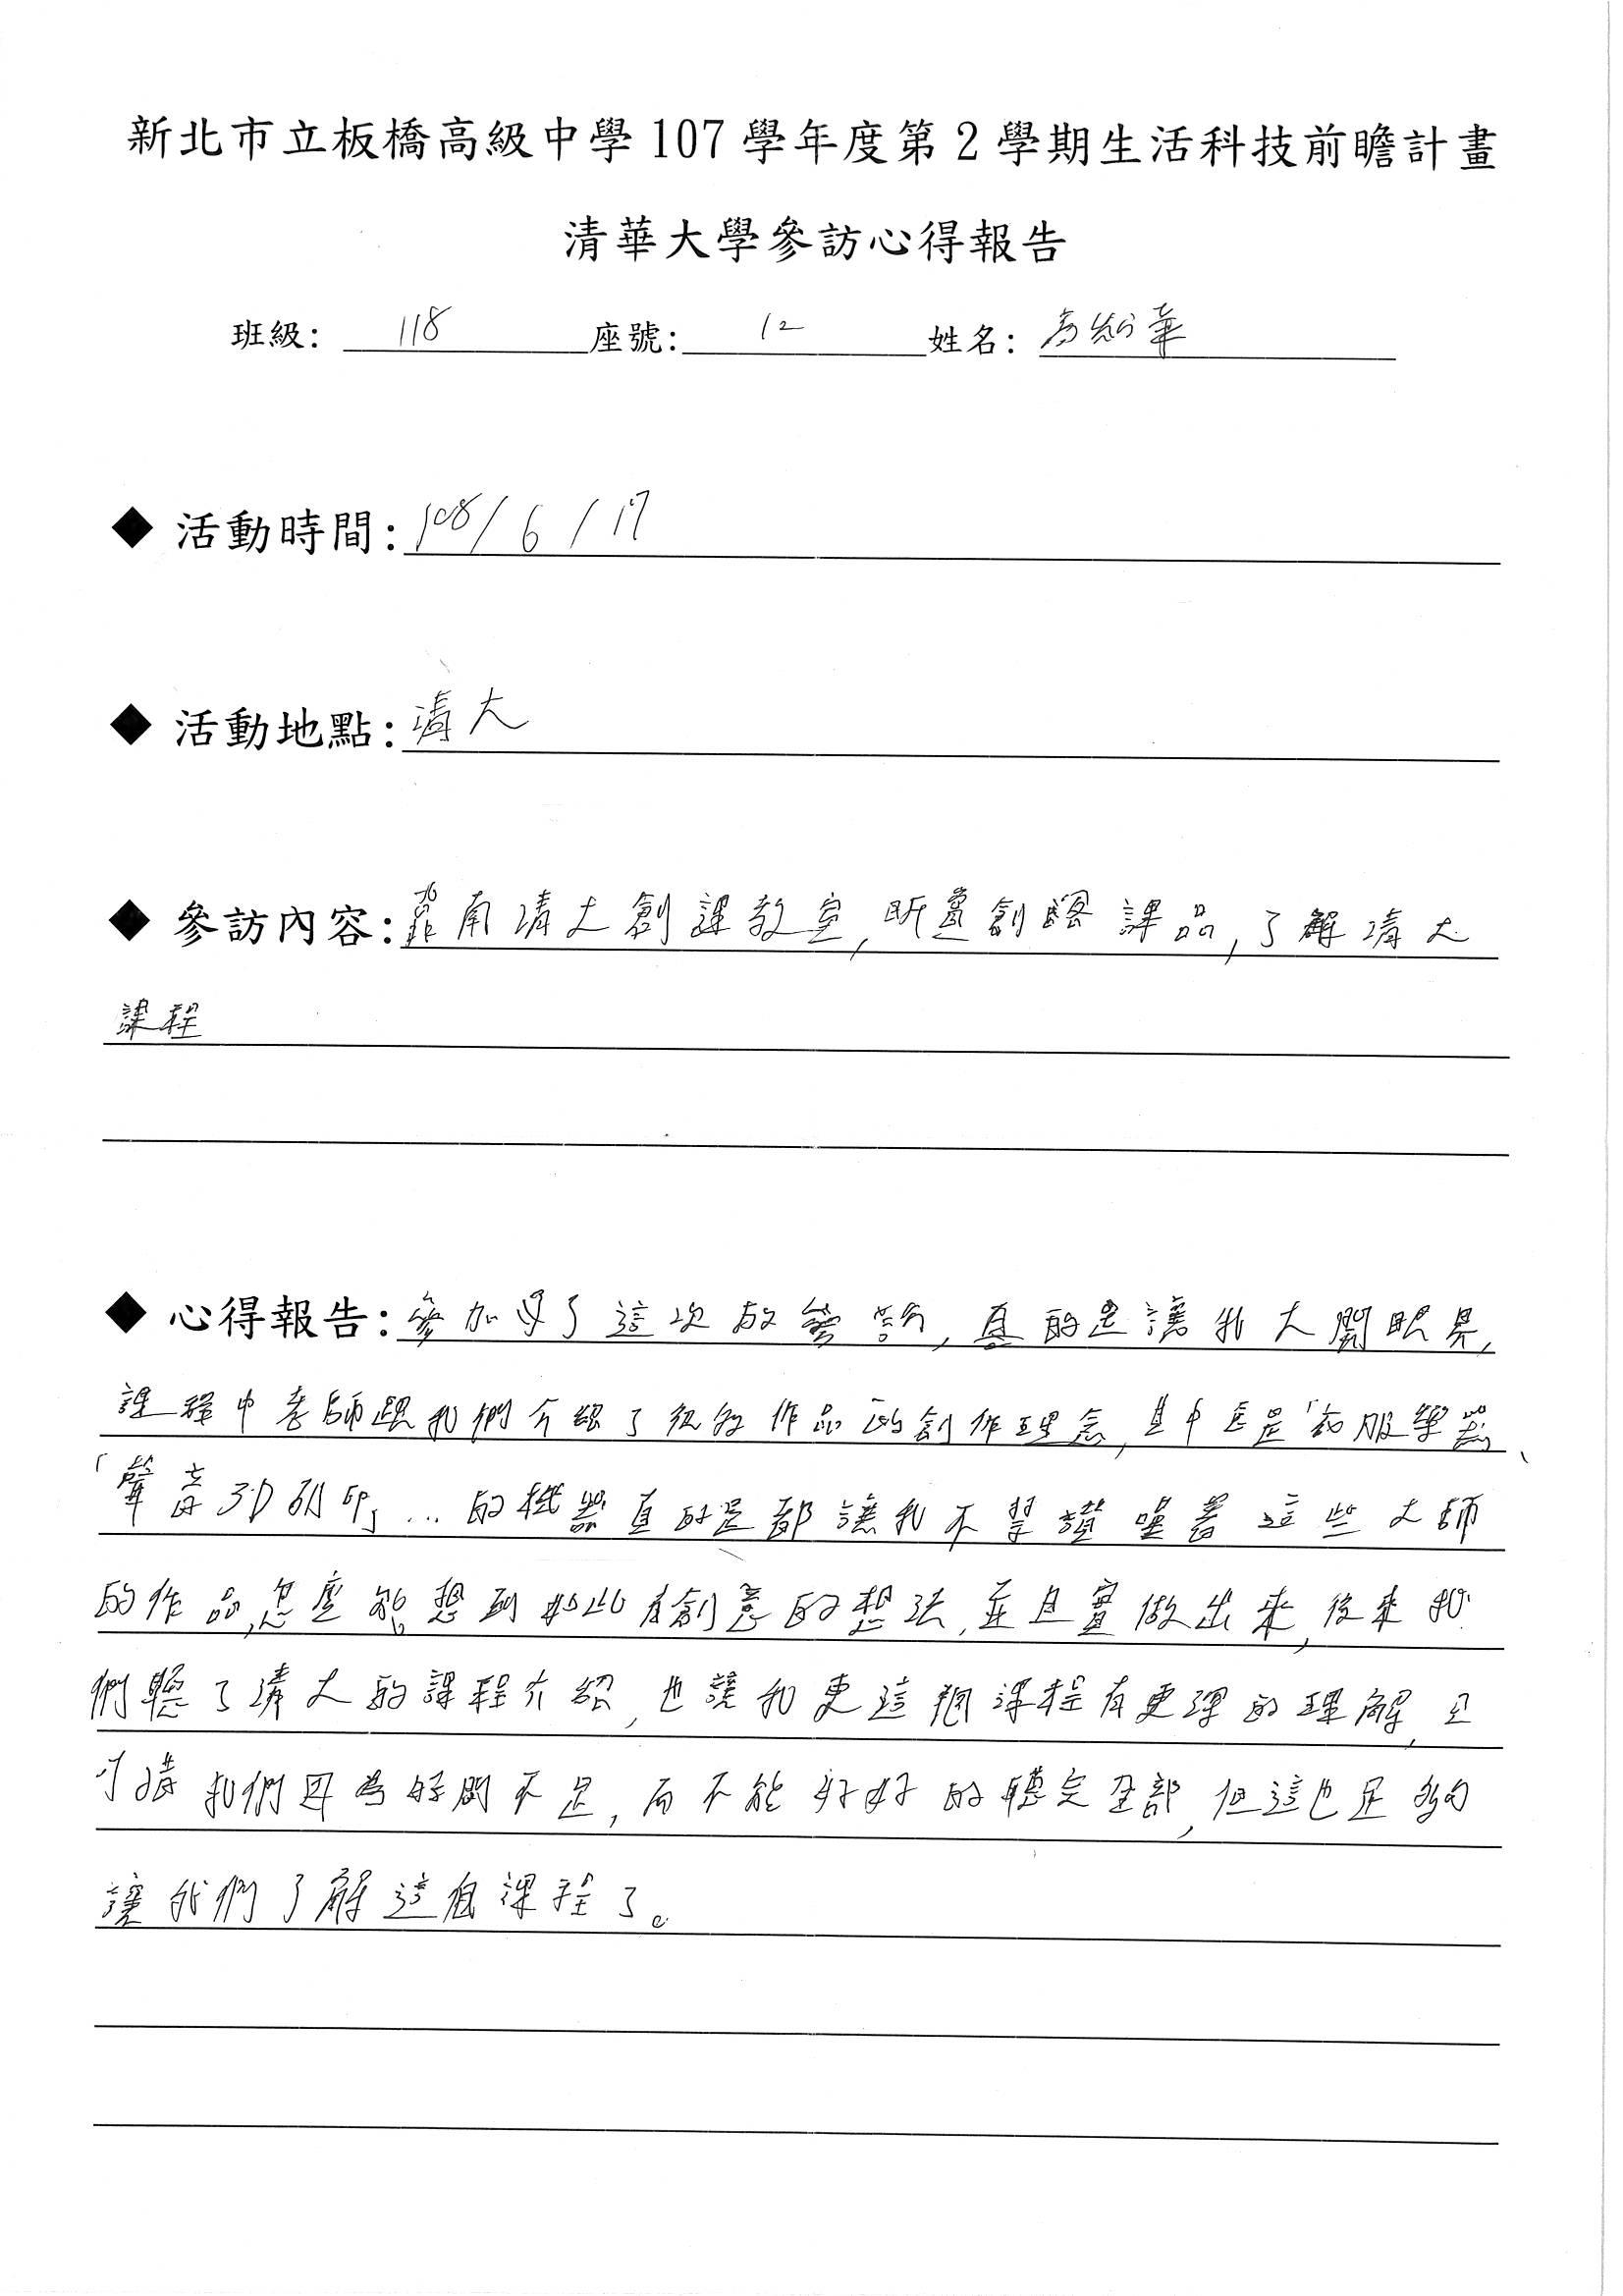 新北市立板橋高級中學 107 學年度第 2 學期生活科技前瞻計畫
清華大學參訪心得報告
班級： 118 座號： 12 姓名： 華
◆ 活動時間：108/6/17
◆ 活動地點：清大
◆ 參訪內容：清大創課教室, 創 課品, 了解清大
課程
◆ 心得報告：參加了這次的參訪, 真的是讓我大開眼界,
課程中老師跟我們介紹了很多作品的創作理念, 其中
「聲音3D列印」...的機器真的是都讓我不禁讚嘆著這些大師
的作品,怎麼能想到如此有創意的想法,並且實做出來,後來我
們聽了清大的課程介紹,也讓我更這個課程有更深的理解,只
可惜我們因為時間不足,而不能好好的聽完全部,但這也足夠
讓我們了解這個課程了。